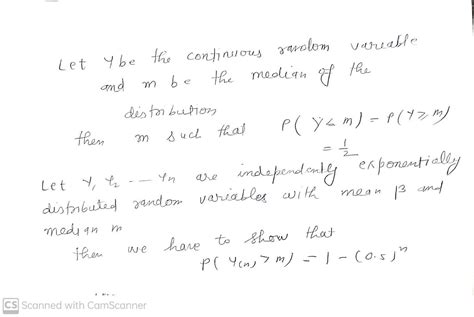 Let Y be the continuous random variable
and m be the median of the
distribution
then m such that P( Y ≤ m) = P(Y ≥ m)
= 1/2
Let Y, Y2 --- Yn are independently exponentially
distributed random variables with mean β and
median m
then we have to show that
P( Y(n) > m) = 1 - (0.5)^n
CS Scanned with CamScanner